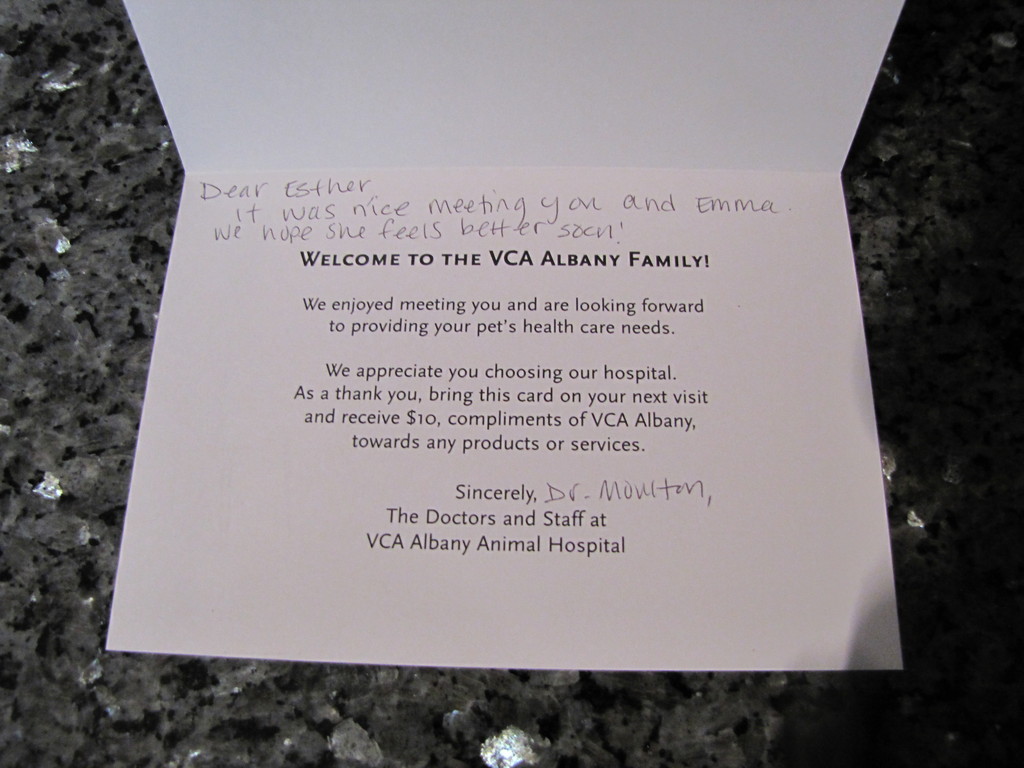 Dear Esther,
It was nice meeting you and Emma.
We hope she feels better soon!
WELCOME TO THE VCA ALBANY FAMILY!
We enjoyed meeting you and are looking forward
to providing your pet's health care needs.
We appreciate you choosing our hospital.
As a thank you, bring this card on your next visit
and receive $10, compliments of VCA Albany,
towards any products or services.
Sincerely, Dr. Moulton,
The Doctors and Staff at
VCA Albany Animal Hospital